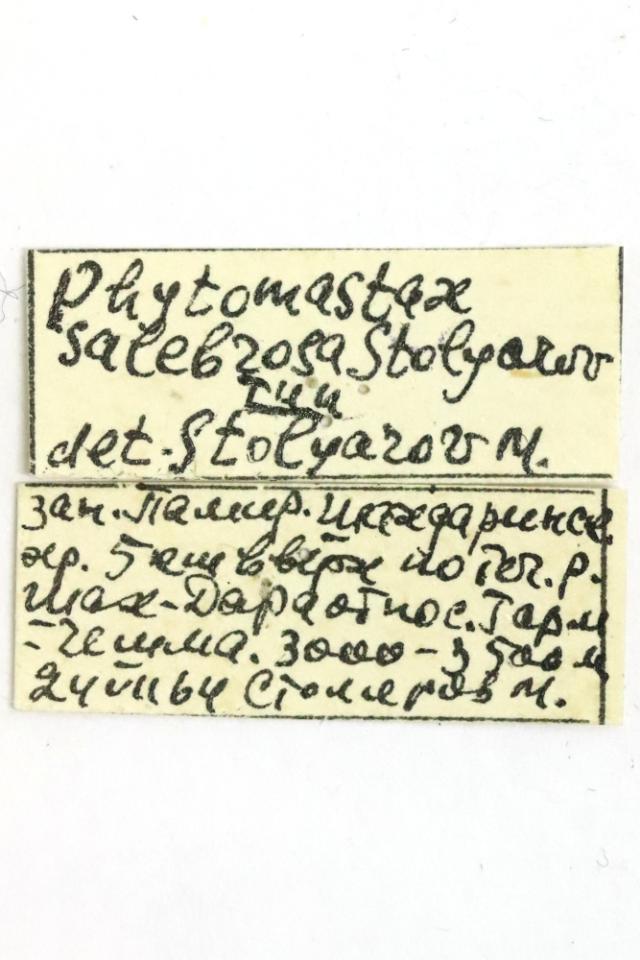 Phytomastax
salebrosa Stolyarov
тип
det. Stolyarov M.
зап. Памир. Шахдаринск.
хр. 5 км вверх по теч. р.
Шах-Дара от пос. Гарм
-Чешма. 3000-3500 м
24 VII 64 Столяров М.